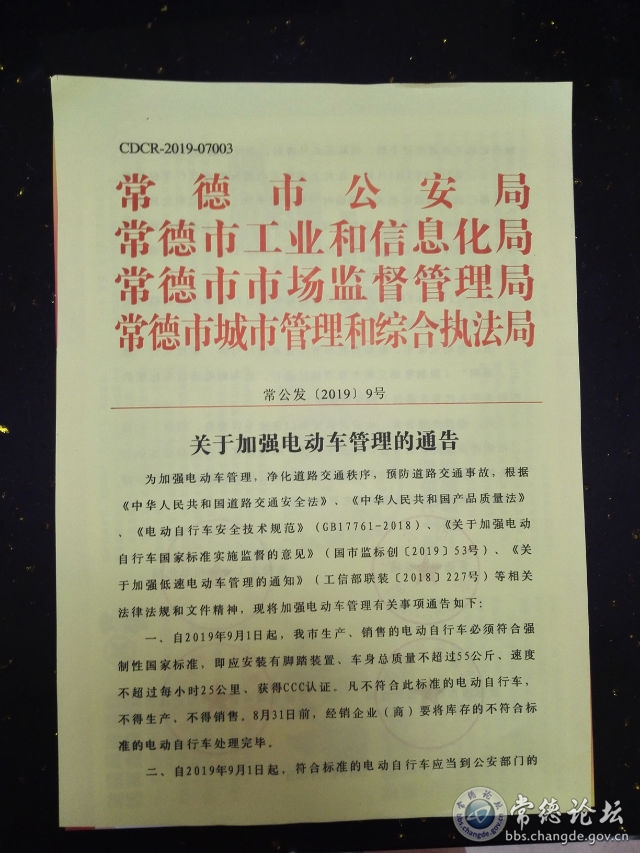 CDCR-2019-07003
常德市公安局
常德市工业和信息化局
常德市市场监督管理局
常德市城市管理和综合执法局
常公发〔2019〕9号
关于加强电动车管理的通告
为加强电动车管理，净化道路交通秩序，预防道路交通事故，根据
《中华人民共和国道路交通安全法》、《中华人民共和国产品质量法》
、《电动自行车安全技术规范》（GB17761-2018）、《关于加强电动
自行车国家标准实施监督的意见》（国市监标创〔2019〕53号）、《关
于加强低速电动车管理的通知》（工信部联装〔2018〕227号）等相关
法律法规和文件精神，现将加强电动车管理有关事项通告如下：
一、自2019年9月1日起，我市生产、销售的电动自行车必须符合强
制性国家标准，即应安装有脚踏装置、车身总质量不超过55公斤、速度
不超过每小时25公里、获得CCC认证。凡不符合此标准的电动自行车，
不得生产、不得销售。8月31日前，经销企业（商）要将库存的不符合标
准的电动自行车处理完毕。
二、自2019年9月1日起，符合标准的电动自行车应当到公安部门的
常德论坛
bbs.changde.gov.cn